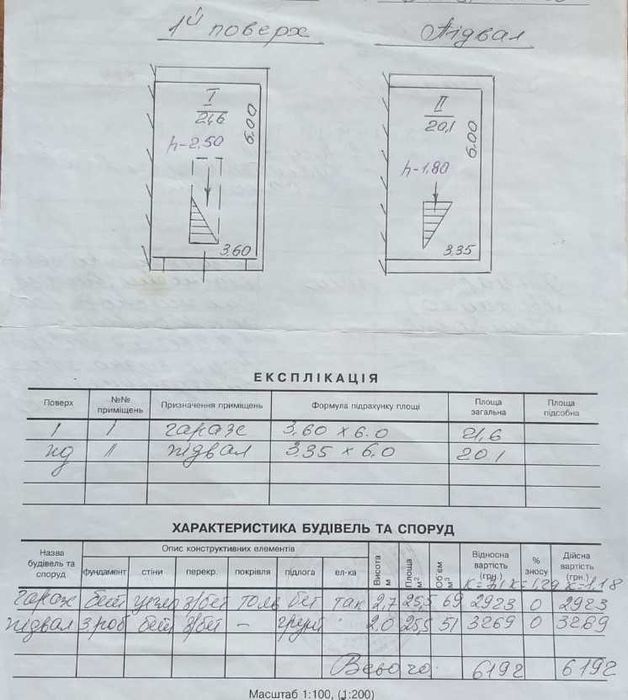 1й поверх Підвал
I II
21,6 20,1
6.00 6.00
h-2,50 h-1,80
3,60 3.35
ЕКСПЛІКАЦІЯ
Поверх №№ приміщень Призначення приміщень Формула підрахунку площі Площа загальна Площа підсобна
1 1 гараж 3,60 x 6.0 21,6
пд 1 підвал 3.35 x 6.0 20,1
ХАРАКТЕРИСТИКА БУДІВЕЛЬ ТА СПОРУД
Назва будівель та споруд Опис конструктивних елементів Висота м Площа м² Об'єм м³ Відносна вартість (грн.) % зносу Дійсна вартість (грн.)
фундамент стіни перекр. покрівля підлога ел-ка
гараж бет з/бет толь бет так 2,7 25,5 69 2923 0 2923
підвал бет з/бет - 2.0 25,5 51 3269 0 3269
Всього: 6192 6192
Масштаб 1:100, (1:200)